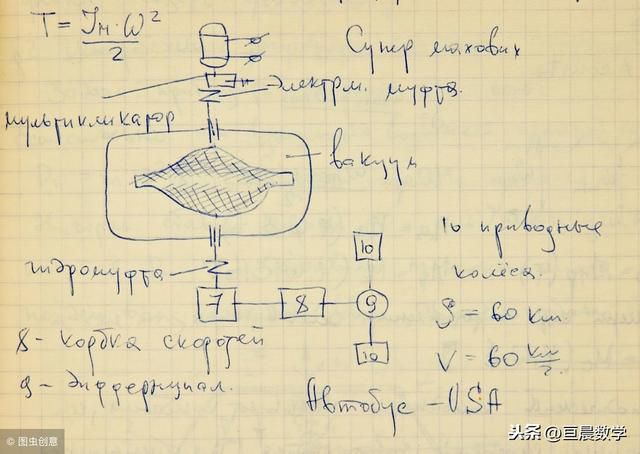 T = Jм·ω²
2
Супер маховик
электрм. муфта.
мультипликатор
вакуум
10 приводные
колёса.
10
гидромуфта
7
8
9
S = 60 км
8 - коробка скоростей
10
V = 60 км
г.
9 - дифференциал.
Автобус - USA
© 图虫创意
头条 @亘晨数学